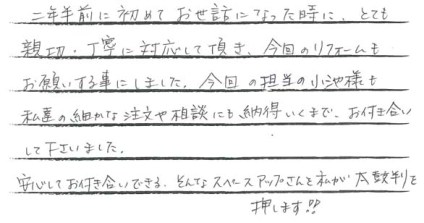 二年半前に初めてお世話になった時に、とても
親切・丁寧に対応して頂き、今回のリフォームも
お願いする事にしました。今回の担当の小池様も
私達の細かな注文や相談にも納得いくまで、お付き合い
して下さいました。
安心してお付き合いできる、そんなスペースアップさんを私が太鼓判を
押します!!